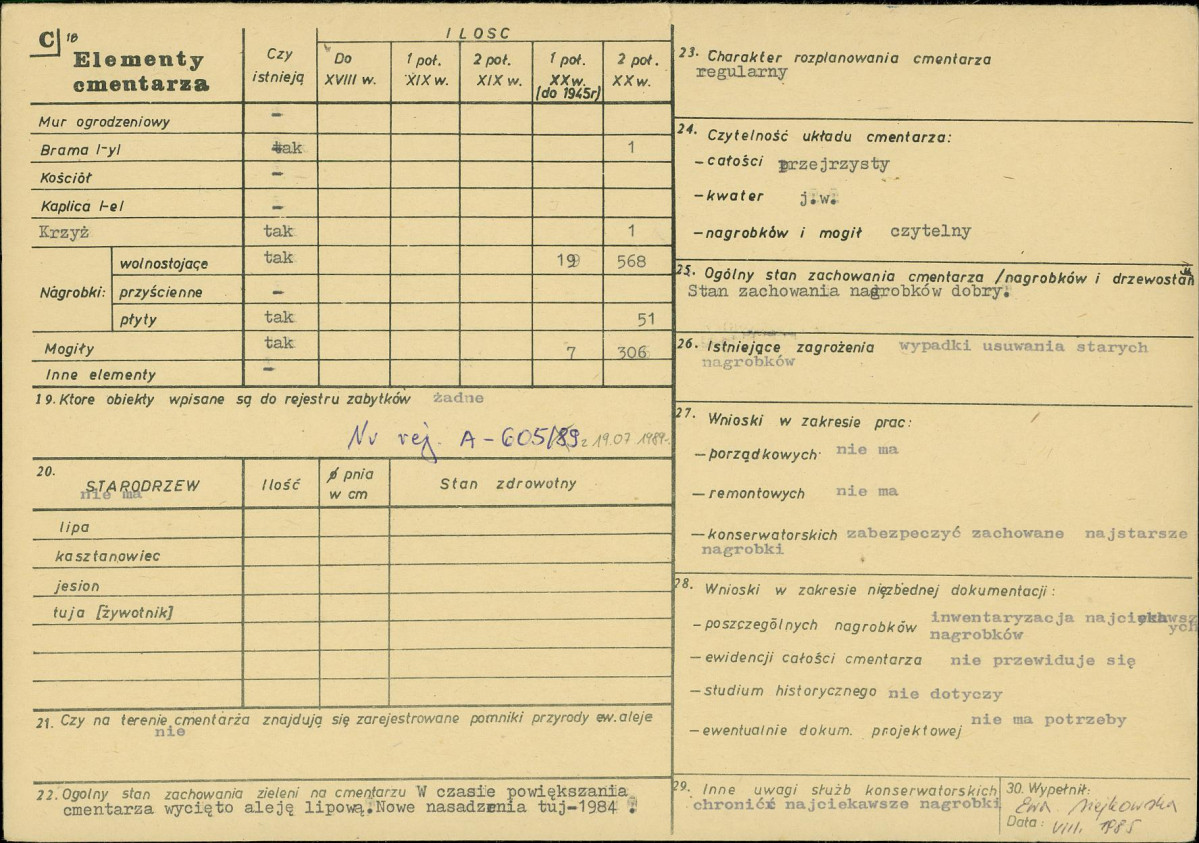 C 18 Elementy cmentarza
Czy istnieją
ILOSC
Do XVIII w.
1 poł. XIX w.
2 poł. XIX w.
1 poł. XX w. (do 1945r)
2 poł. XX w.
Mur ogrodzeniowy -
Brama l-yl tak 1
Kościół -
Kaplica l-el -
Krzyż tak 1
Nagrobki:
wolnostojące tak 19 568
przyścienne -
płyty tak 51
Mogiły tak 7 306
Inne elementy -
19. Ktore obiekty wpisane są do rejestru zabytków żadne
Nr rej. A-605/89 z 19.07 1989r.
20. STARODRZEW
nie ma
Ilość
ø pnia w cm
Stan zdrowotny
lipa
kasztanowiec
jesion
tuja [żywotnik]
21. Czy na terenie cmentarża znajdują się zarejestrowane pomniki przyrody ew. aleje
nie
22. Ogolny stan zachowania zieleni na cmentarzu W czasie powiększania
cmentarza wycięto aleję lipową. Nowe nasadzenia tuj-1984.
23. Charakter rozplanowania cmentarza
regularny
24. Czytelność układu cmentarza:
- całości przejrzysty
- kwater j.w.
- nagrobków i mogił czytelny
25. Ogólny stan zachowania cmentarza /nagrobków i drzewostanu
Stan zachowania nagrobków dobry.
26. Istniejące zagrożenia wypadki usuwania starych
nagrobków
27. Wnioski w zakresie prac:
- porządkowych nie ma
- remontowych nie ma
- konserwatorskich zabezpeczyć zachowane najstarsze
nagrobki
28. Wnioski w zakresie niezbednej dokumentacji:
- poszczególnych nagrobków inwentaryzacja najciekawszych
nagrobków
- ewidencji całości cmentarza nie przewiduje się
- studium historycznego nie dotyczy
- ewentualnie dokum. projektowej nie ma potrzeby
29. Inne uwagi służb konserwatorskich
chronić najciekawsze nagrobki
30. Wypełnił:
Ewa
Data: VIII. 1985